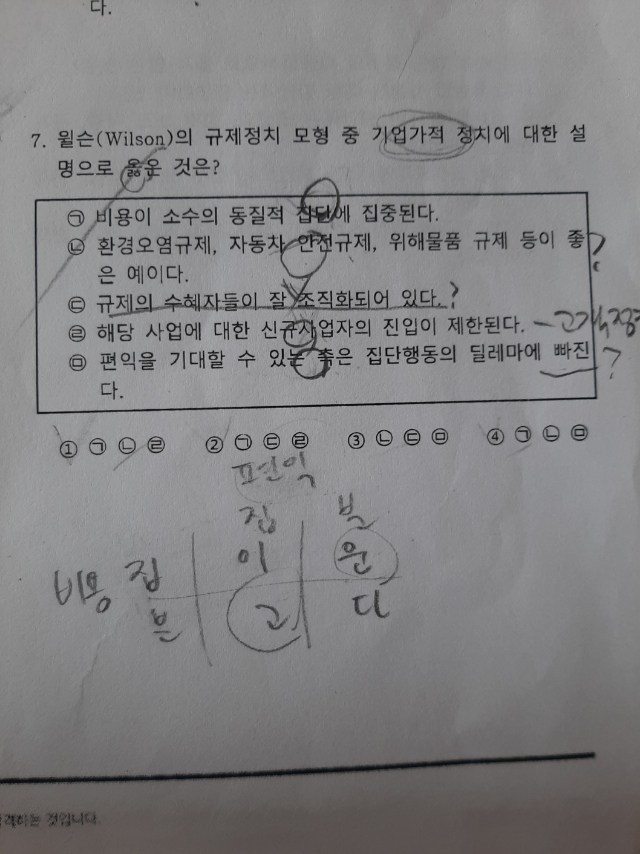 다.
7. 윌슨(Wilson)의 규제정치 모형 중 기업가적 정치에 대한 설
명으로 옳은 것은?
㉠ 비용이 소수의 동질적 집단에 집중된다.
㉡ 환경오염규제, 자동차 안전규제, 위해물품 규제 등이 좋
은 예이다.
?
㉢ 규제의 수혜자들이 잘 조직화되어 있다. ?
㉣ 해당 사업에 대한 신규사업자의 진입이 제한된다. - 고객정
㉤ 편익을 기대할 수 있는 측은 집단행동의 딜레마에 빠진
다.
?
① ㉠ ㉡ ㉣ ② ㉠ ㉢ ㉣ ③ ㉡ ㉢ ㉤ ④ ㉠ ㉡ ㉤
편익
집 분
비용 집 이 운
분 고 다
격하는 것입니다.